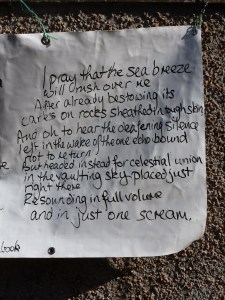 I pray that the sea breeze
will crash over me
After already bestowing its
cares on rocks sheathed in tough skin
And oh to hear the deafening silence
left in the wake of the one echo bound
not to return
but headed instead for celestial union
in the vaulting sky - placed just
right there
Resounding in full volume
and in just one scream.